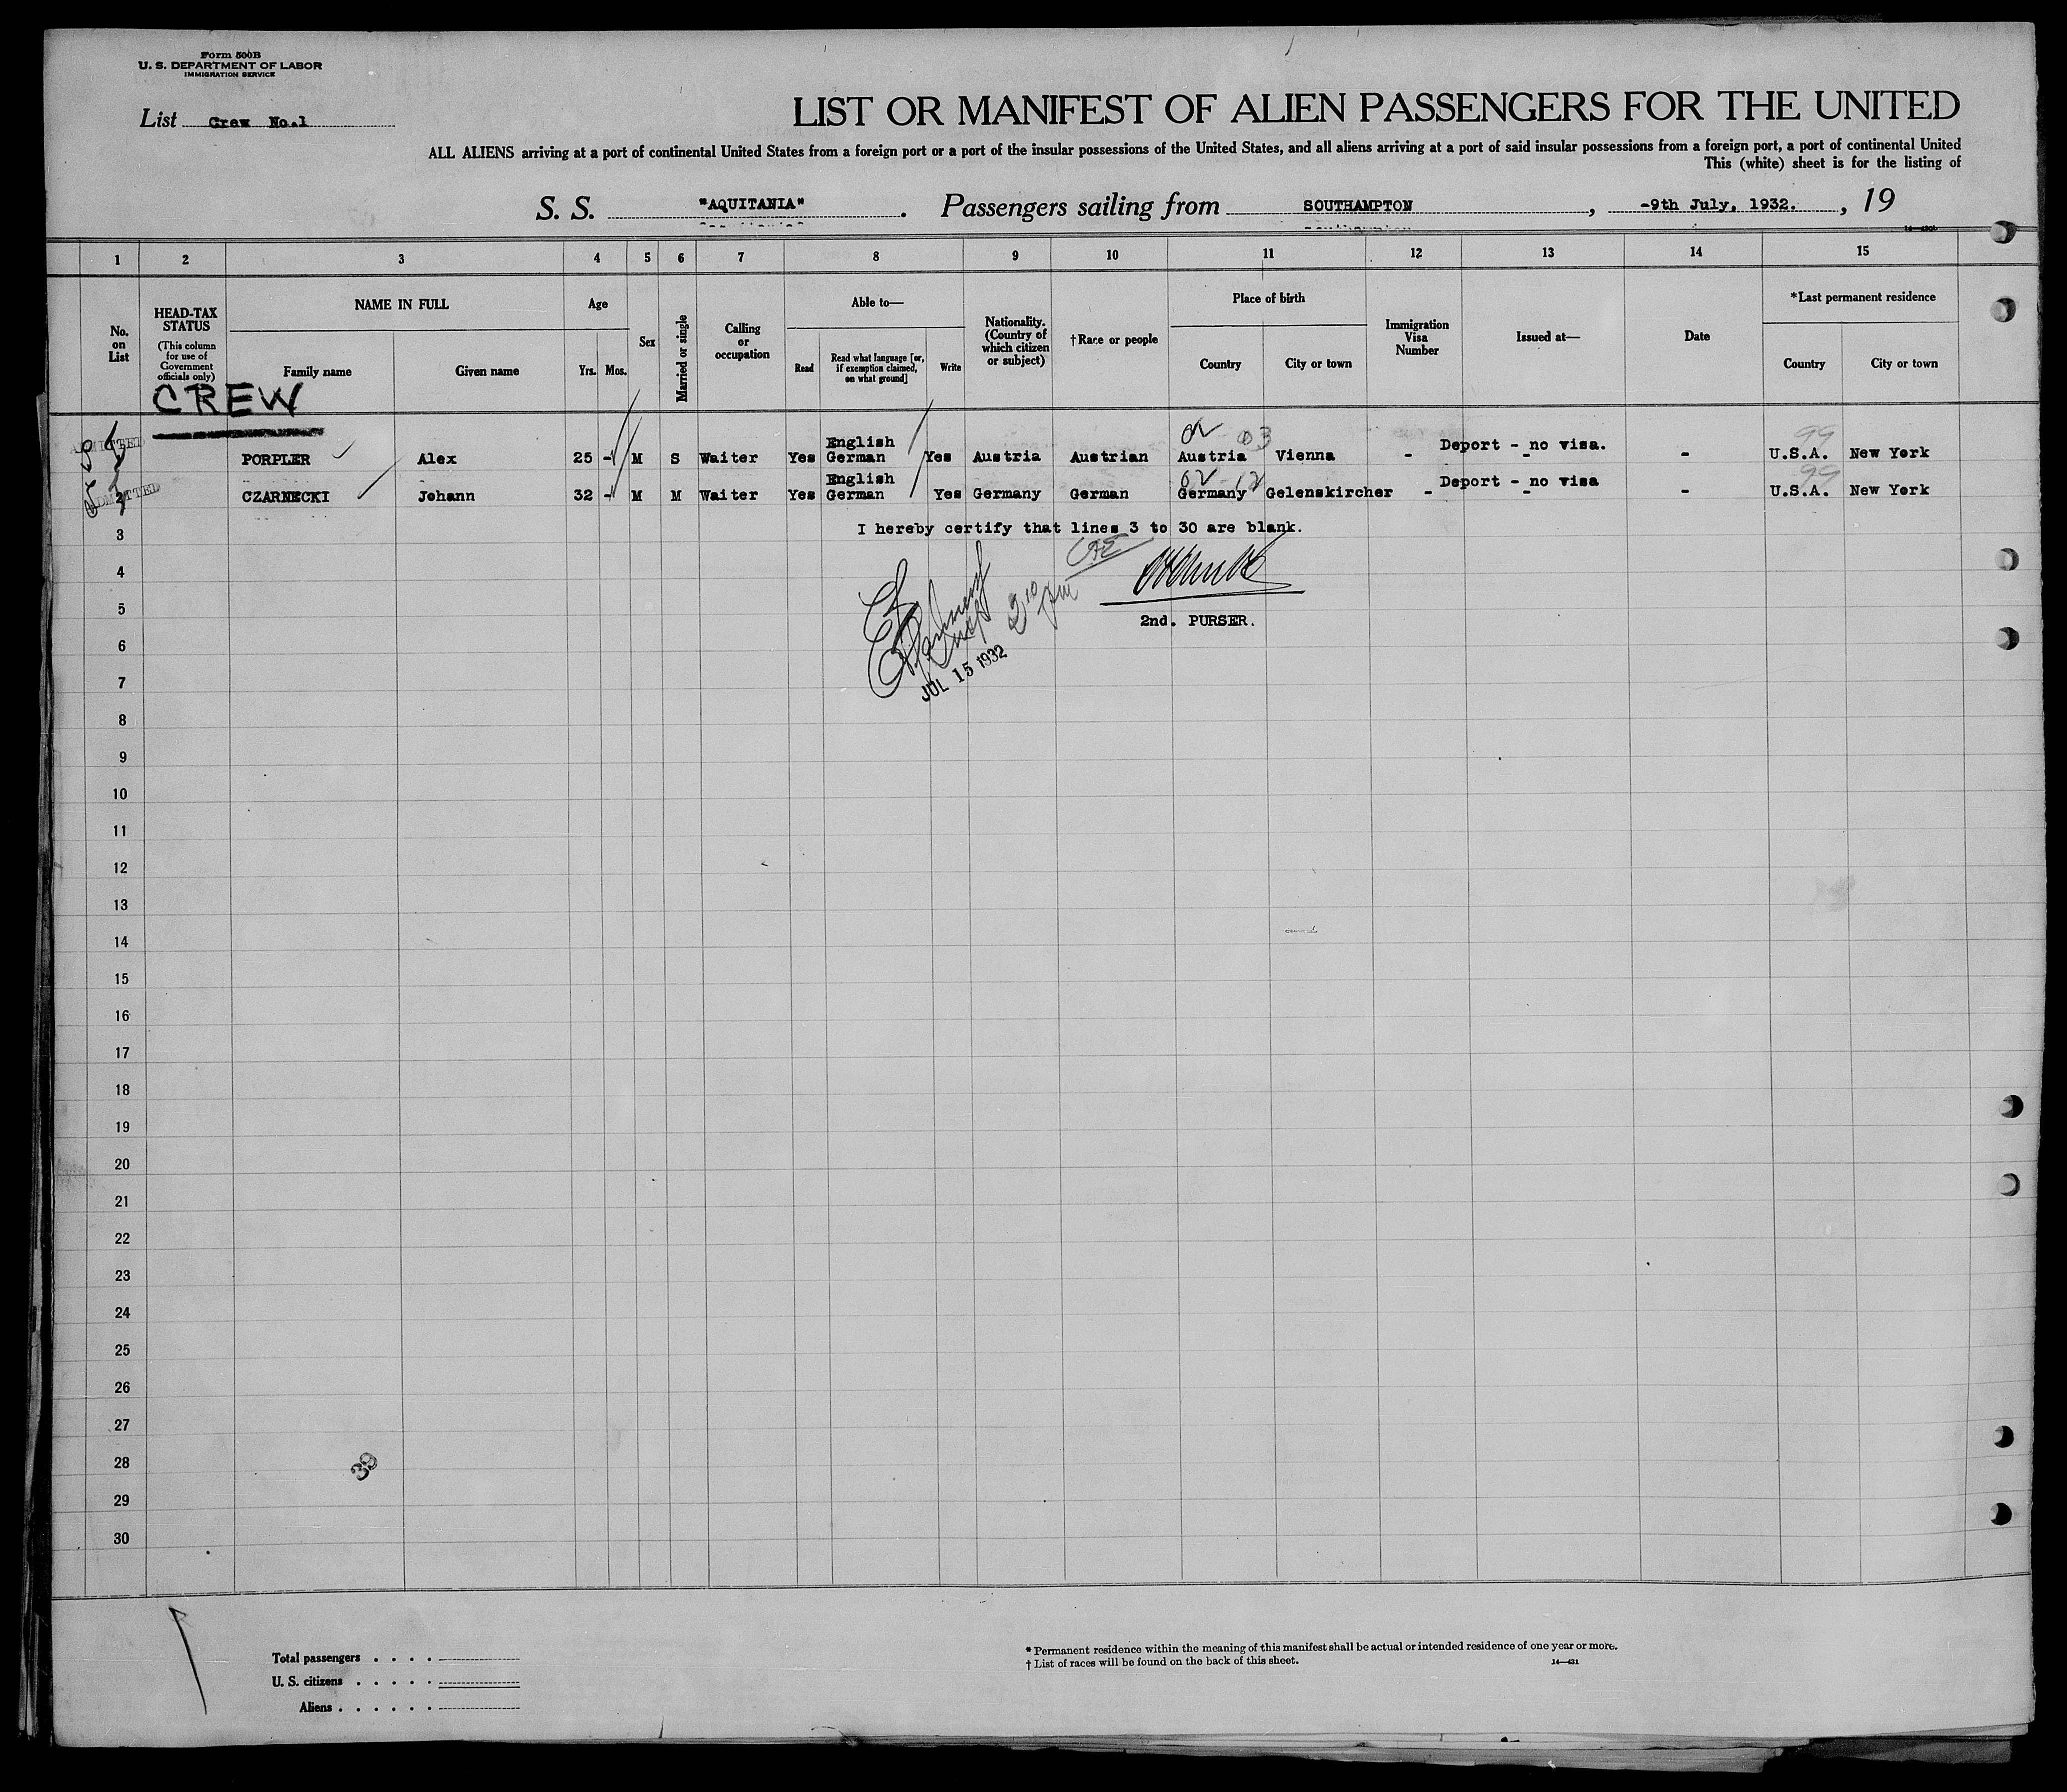 Form 500B
U. S. DEPARTMENT OF LABOR
IMMIGRATION SERVICE
List Crew No.1
LIST OR MANIFEST OF ALIEN PASSENGERS FOR THE UNITED
ALL ALIENS arriving at a port of continental United States from a foreign port or a port of the insular possessions of the United States, and all aliens arriving at a port of said insular possessions from a foreign port, a port of continental United
This (white) sheet is for the listing of
S. S. "AQUITANIA" . Passengers sailing from SOUTHAMPTON , -9th July, 1932. , 19
1 2 3 4 5 6 7 8 9 10 11 12 13 14 15
No. on List
HEAD-TAX STATUS
(This column for use of Government officials only)
NAME IN FULL
Family name
Given name
Age
Yrs. Mos.
Sex
Married or single
Calling or occupation
Able to—
Read
Read what language [or, if exemption claimed, on what ground]
Write
Nationality. (Country of which citizen or subject)
†Race or people
Place of birth
Country
City or town
Immigration Visa Number
Issued at—
Date
*Last permanent residence
Country
City or town
CREW
ADMITTED
English 03 Deport - no visa. 99
PORPLER Alex 25 - M S Waiter Yes German Yes Austria Austrian Austria Vienna - - - U.S.A. New York
ADMITTED
English 02 12 Deport - no visa 99
2 CZARNECKI Johann 32 - M M Waiter Yes German Yes Germany German Germany Gelenskircher - - - U.S.A. New York
3 I hereby certify that lines 3 to 30 are blank.
4
5
2nd. PURSER.
2 10 pm
JUL 15 1932
6
7
8
9
10
11
12
13
14
15
16
17
18
19
20
21
22
23
24
25
26
27
28
39
29
30
Total passengers . . . .
U. S. citizens . . . . .
Aliens . . . . . .
* Permanent residence within the meaning of this manifest shall be actual or intended residence of one year or more.
† List of races will be found on the back of this sheet.
14—431